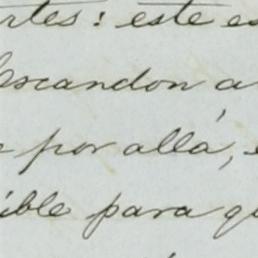 rtes: este es
Escandon a
e por allá, e
ible para qu